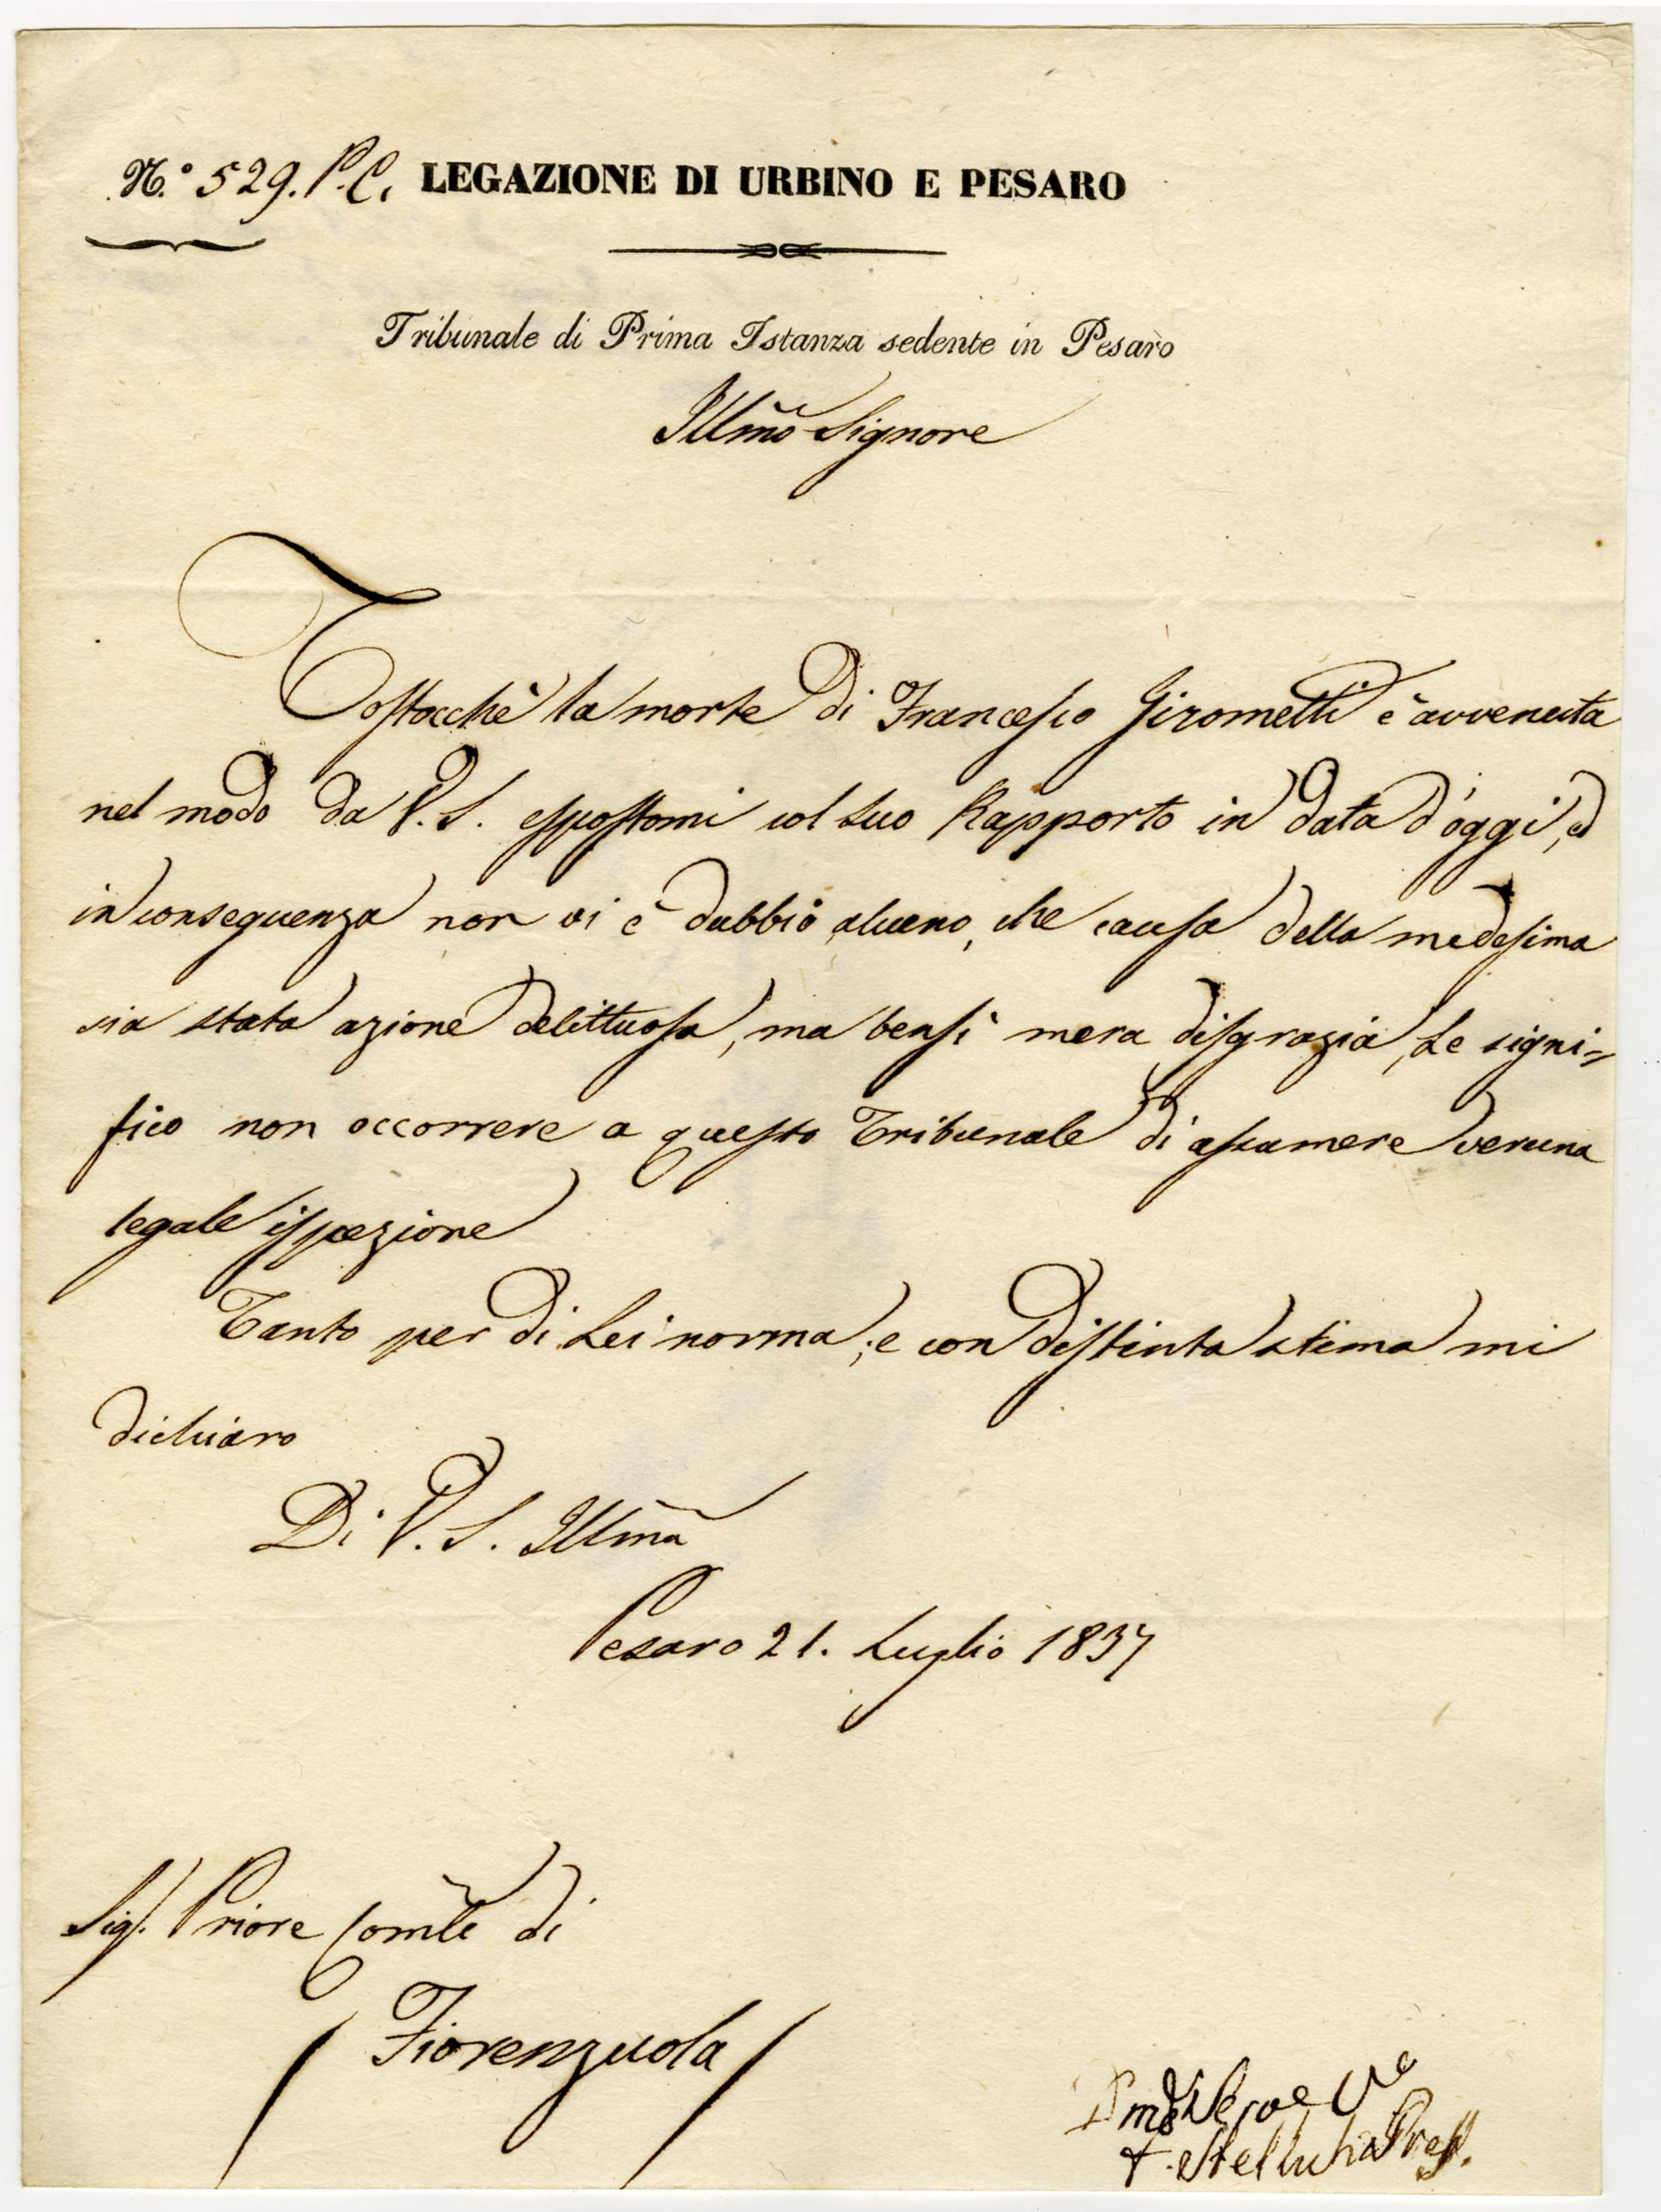 N.° 529. P. C. LEGAZIONE DI URBINO E PESARO
Tribunale di Prima Istanza sedente in Pesaro
Illmo Signore
Tostocchè la morte di Francesco Girometti è avvenuta
nel modo da V. S. espostomi col suo Rapporto in data d'oggi, ed
in conseguenza non vi è dubbio alcuno, che causa della medesima
sia stata azione delittuosa, ma bensì mera disgrazia, Le signi=
fico non occorrere a questo Tribunale di assumere veruna
legale ispezione
Tanto per di Lei norma; e con distinta stima mi
dichiaro
Di V. S. Illma
Pesaro 21. Luglio 1837
Sigr. Priore Comle di
Fiorenzuola